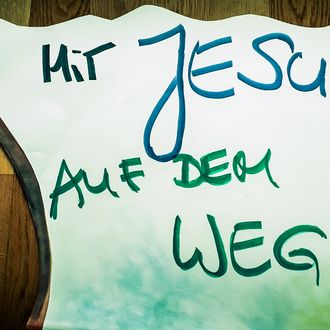 MiT JESU
AUF DEM
WEG